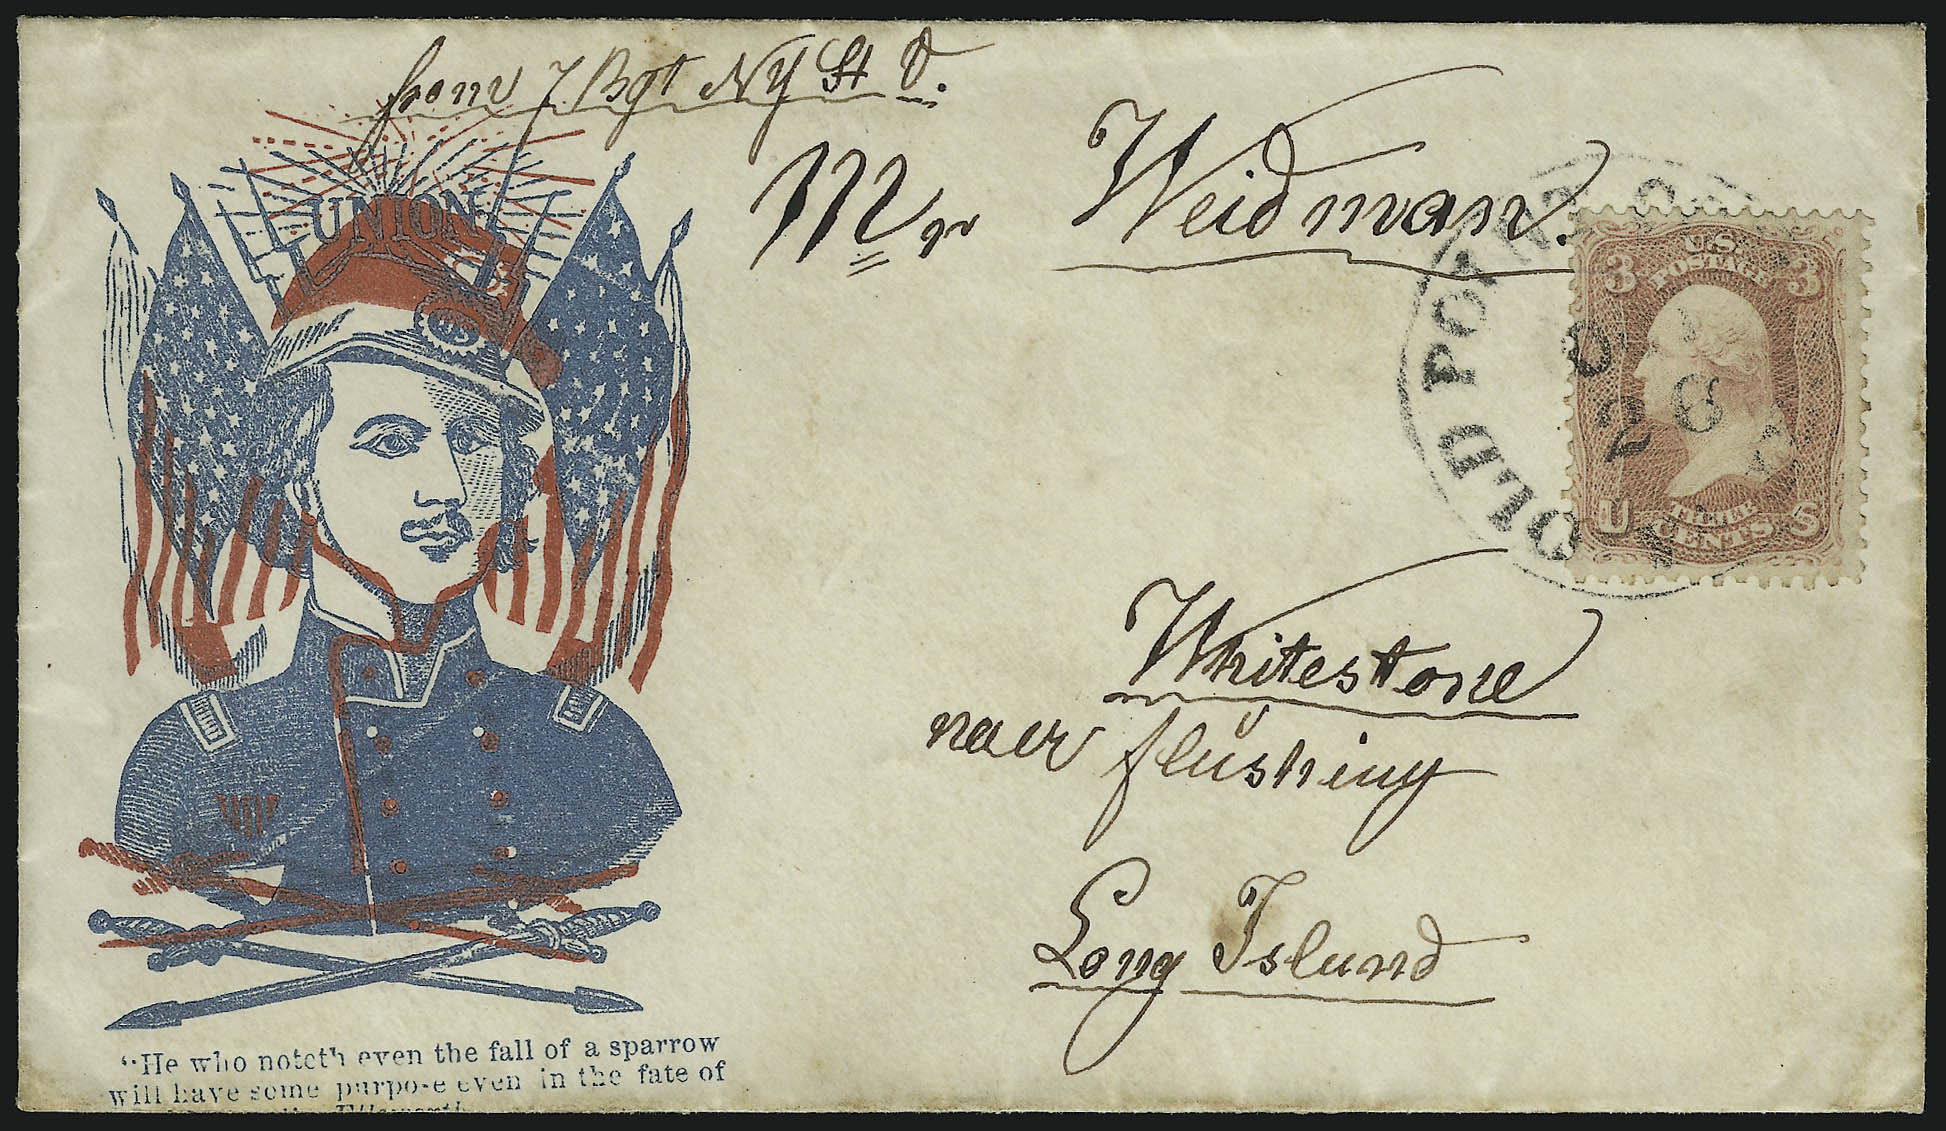 from 7 Rgt NY St V.
Mr Weidman.
UNION
US
OLD POINT CO
26
U.S.
POSTAGE
3 3
THREE
CENTS
U S
Whitestone
naer flushing
Long Island
"He who noteth even the fall of a sparrow
will have some purpose even in the fate of